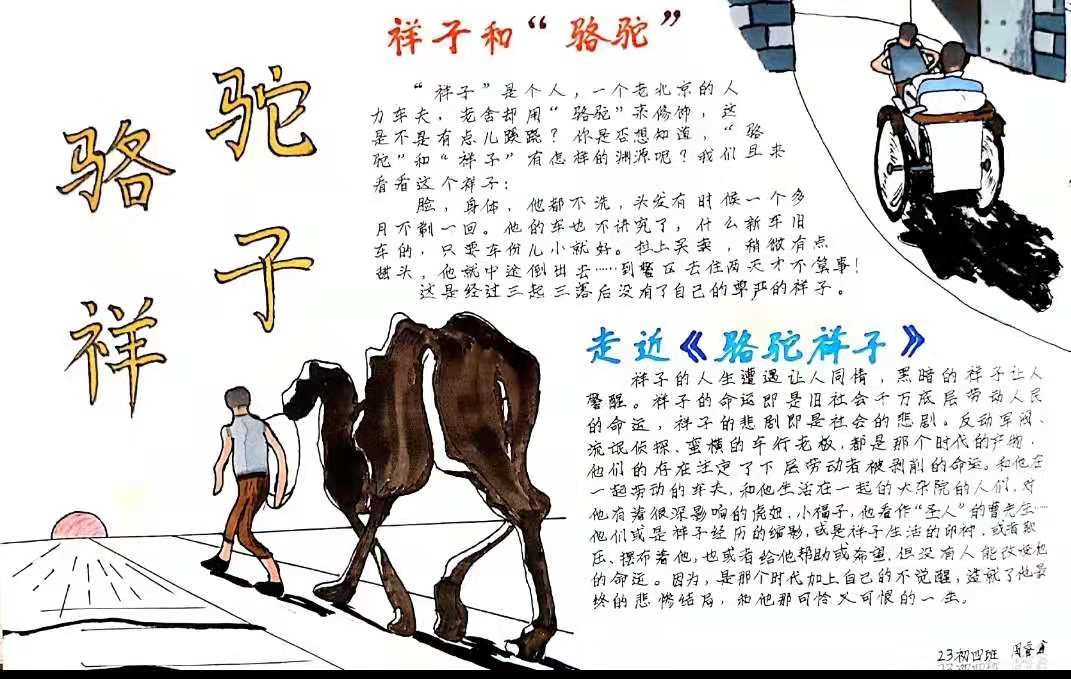 骆驼
祥子
祥子和“骆驼”
“祥子”是个人，一个老北京的人
力车夫，老舍却用“骆驼”来修饰，这
是不是有点儿蹊跷？你是否想知道，“骆
驼”和“祥子”有怎样的渊源呢？我们且来
看看这个祥子：
脸，身体，他都不洗，头发有时候一个多
月不剃一回。他的车也不讲究了，什么新车旧
车的，只要车份儿小就好。拉上买卖，稍微有点
甜头，他就中途倒出去……到警区去住两天才不算事！
这是经过三起三落后没有了自己的尊严的祥子。
走近《骆驼祥子》
祥子的人生遭遇让人同情，黑暗的祥子让人
警醒。祥子的命运即是旧社会千万底层劳动人民
的命运，祥子的悲剧即是社会的悲剧。反动军阀、
流氓侦探、蛮横的车行老板，都是那个时代的产物，
他们的存在注定了下层劳动者被剥削的命运。和他在
一起劳动的车夫，和他生活在一起的大杂院的人们，对
他有着很深影响的虎妞、小福子，他看作“圣人”的曹先生……
他们或是祥子经历的缩影，或是祥子生活的印衬，或者欺
压、摆布着他，也或者给他帮助或希望，但没有人能改变他
的命运。因为，是那个时代加上自己的不觉醒，造就了他最
终的悲惨结局，和他那可怜又可恨的一生。
23初四班